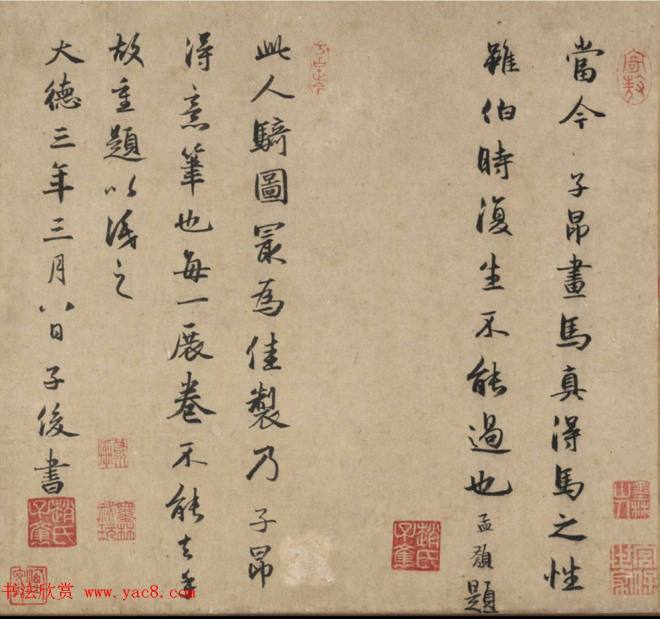 當今子昂畫馬真得馬之性
雖伯時復生不能過也孟頖題
此人騎圖㝡為佳製乃子昂
得意筆也每一展卷不能去手
故重題以識之
大德三年三月八日子俊書
趙氏
子俊
趙氏
子俊
书法欣赏 www.yac8.com